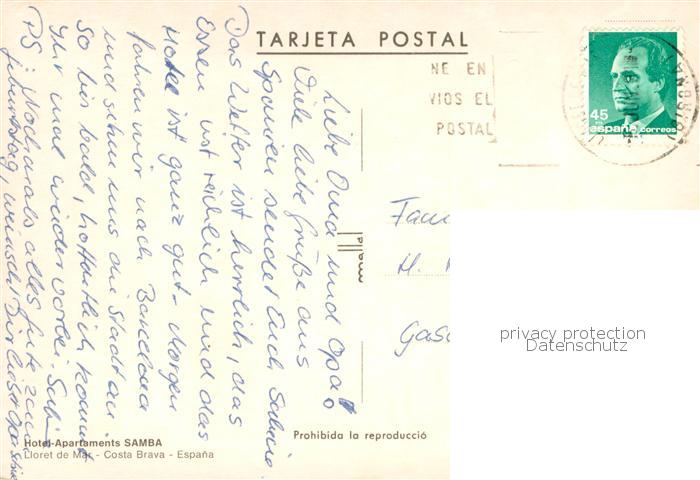 TARJETA POSTAL
NE EN
VIOS EL
POSTAL
45
PTA
españa correos
Liebe Oma und Opa
Viele liebe Grüße aus
Spanien sendet Euch Sabine.
Das Wetter ist herrlich, das
Essen ist reichlich und das
Hotel ist ganz gut. Morgen
fahren wir nach Barcelona
und sehen uns die Stadt an.
So bis bald, hoffentlich kommt
Ihr mal wieder vorbei. Sabine
PS: Nochmals alles Gute zum
Geburtstag, wünscht Dir lieber Opa
Fam
H.
Gas
privacy protection
Datenschutz
Prohibida la reproducció
Hotel-Apartaments SAMBA
Lloret de Mar - Costa Brava - España